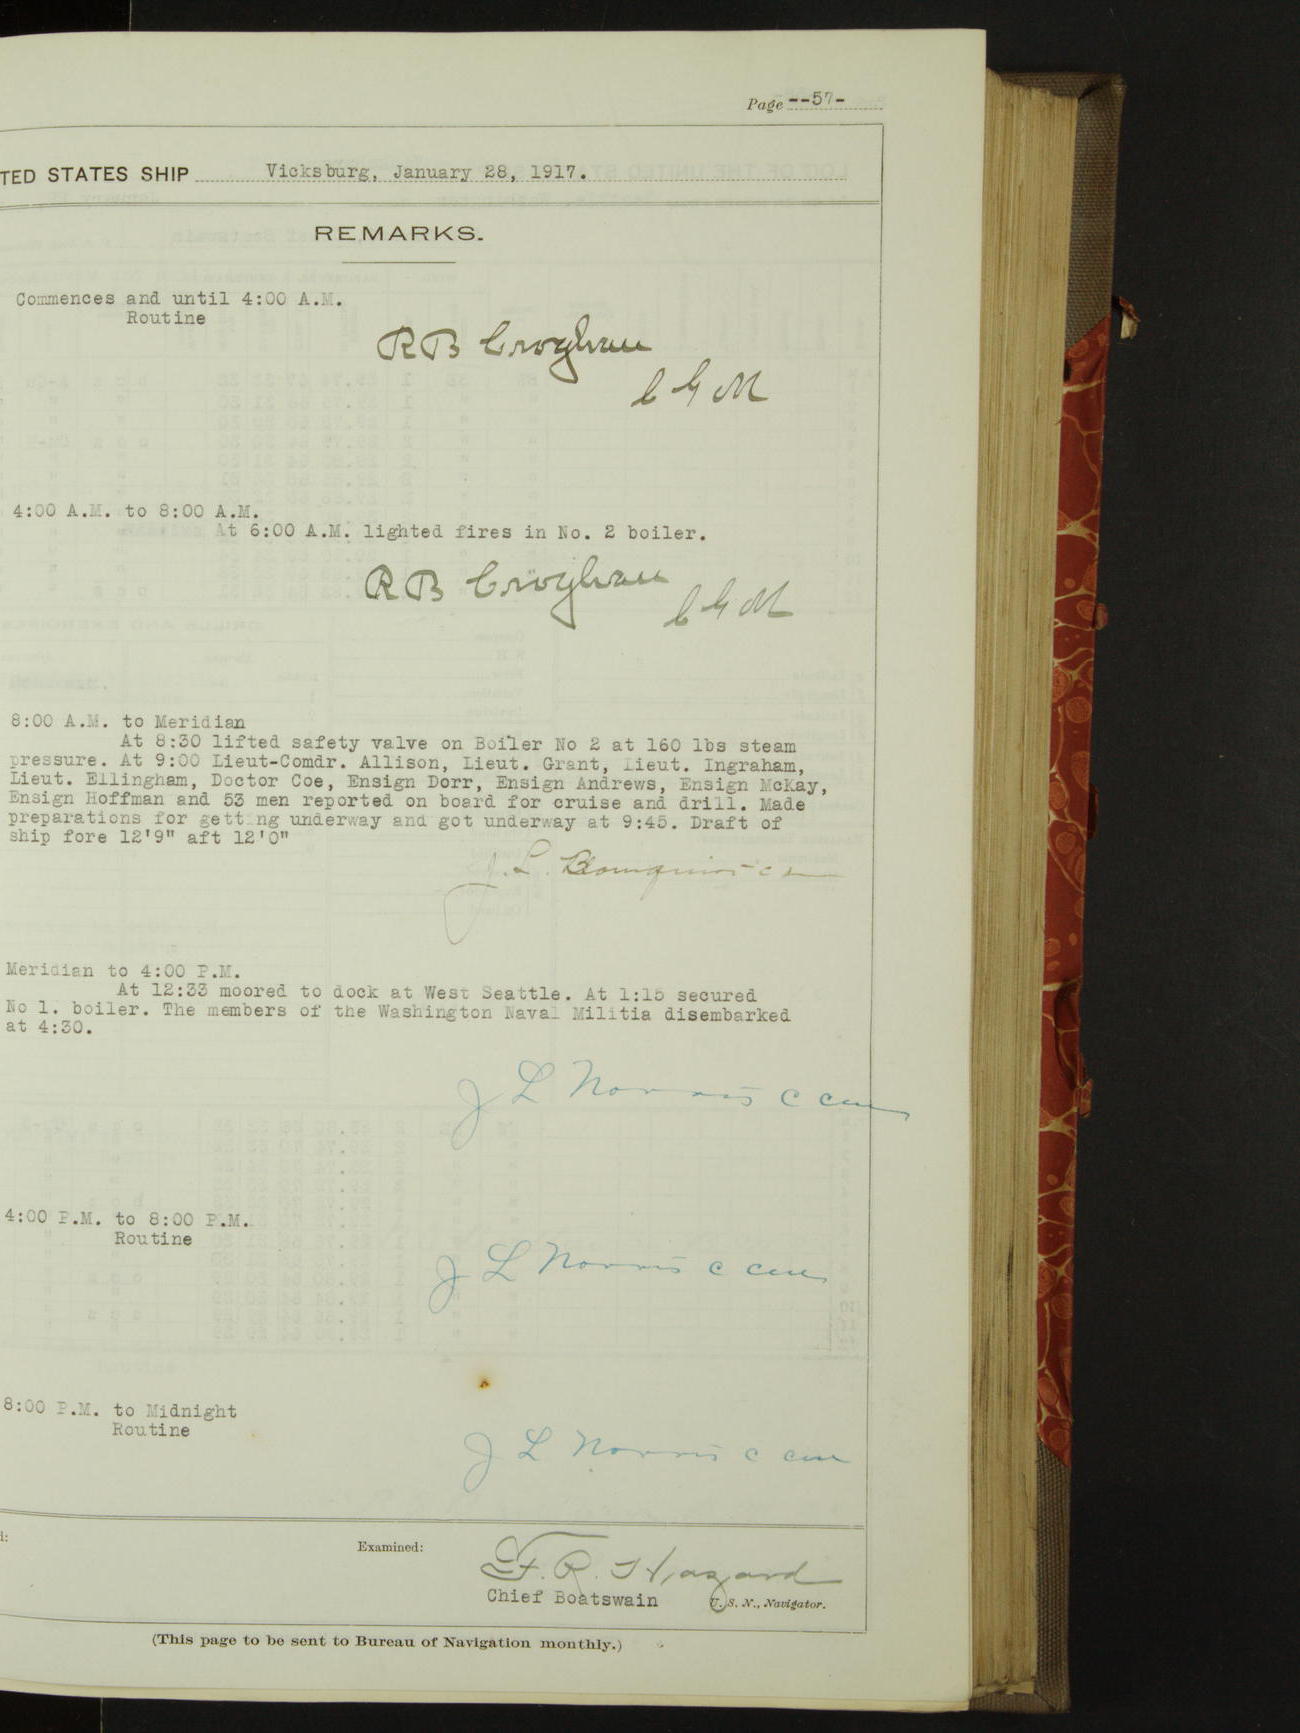 Page --57-
TED STATES SHIP Vicksburg, January 28, 1917.
REMARKS.
Commences and until 4:00 A.M.
Routine
R B Croghan
C G M
4:00 A.M. to 8:00 A.M.
At 6:00 A.M. lighted fires in No. 2 boiler.
R B Croghan
C G M
8:00 A.M. to Meridian
At 8:30 lifted safety valve on Boiler No 2 at 160 lbs steam
pressure. At 9:00 Lieut-Comdr. Allison, Lieut. Grant, Lieut. Ingraham,
Lieut. Ellingham, Doctor Coe, Ensign Dorr, Ensign Andrews, Ensign McKay,
Ensign Hoffman and 53 men reported on board for cruise and drill. Made
preparations for getting underway and got underway at 9:45. Draft of
ship fore 12'9" aft 12'0"
J. L.
Meridian to 4:00 P.M.
At 12:33 moored to dock at West Seattle. At 1:15 secured
No 1. boiler. The members of the Washington Naval Militia disembarked
at 4:30.
J L Norris C CM
4:00 P.M. to 8:00 P.M.
Routine
J L Norris C CM
8:00 P.M. to Midnight
Routine
J L Norris C CM
d:
Examined:
F. R. Hazard
Chief Boatswain U. S. N., Navigator.
(This page to be sent to Bureau of Navigation monthly.)